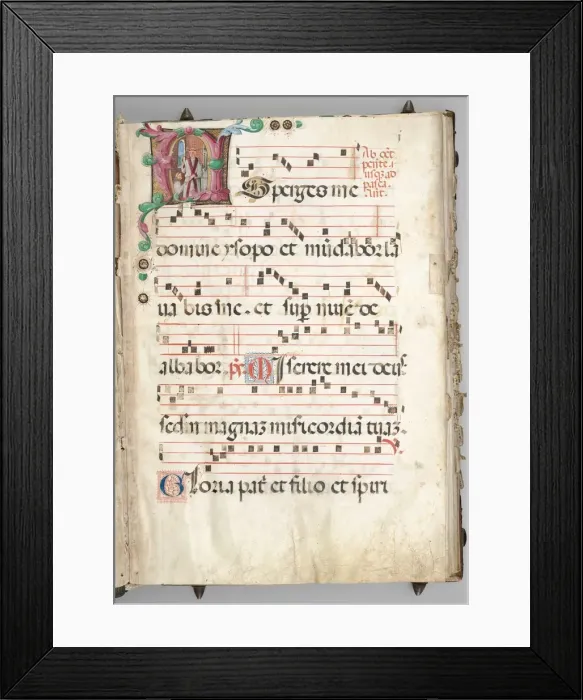 i
Ab oct
penthe.
usq; ad
pasca.
Ant.
Sperges me
domine ysopo et mūdaborla
ua bis me. et sup niuē de
alba bor. ps. Miserere mei deus
scd̄m magnaz misericordiā tuaz.
Gloria pat̄ et filio et spiri